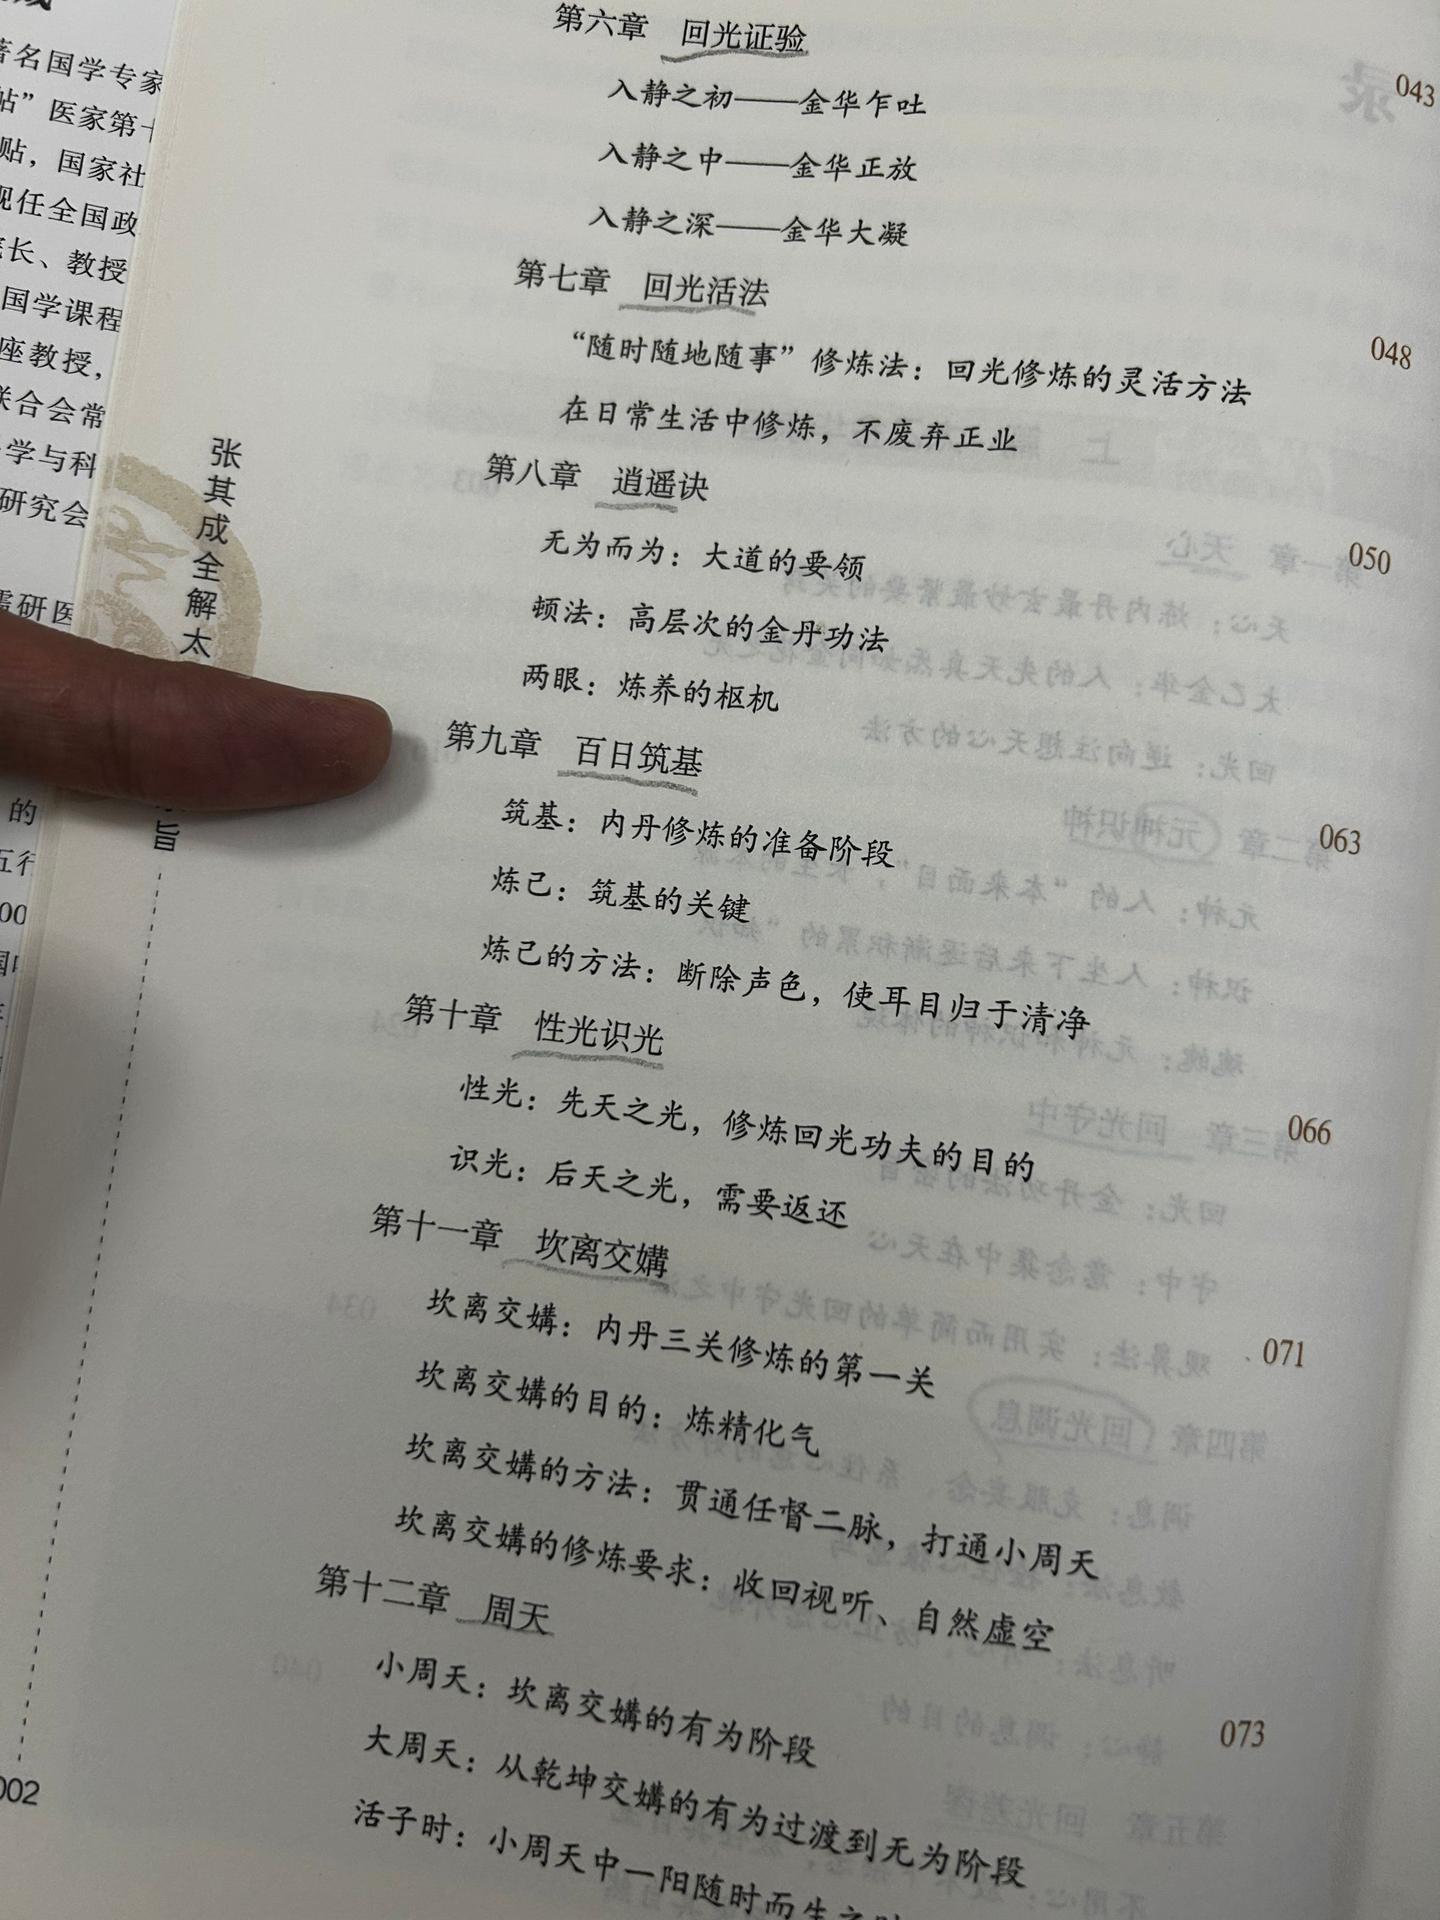 著名国学专家
帖”医家第十
贴，国家社
现任全国政
长、教授
国学课程
座教授，
联合会常
学与科
研究会
儒研医
的
五行
002
张其成全解太
旨
第六章 回光证验 043
入静之初——金华乍吐
入静之中——金华正放
入静之深——金华大凝
第七章 回光活法 048
“随时随地随事”修炼法：回光修炼的灵活方法
在日常生活中修炼，不废弃正业
第八章 逍遥诀 050
无为而为：大道的要领
顿法：高层次的金丹功法
两眼：炼养的枢机
第九章 百日筑基 063
筑基：内丹修炼的准备阶段
炼己：筑基的关键
炼己的方法：断除声色，使耳目归于清净
第十章 性光识光 066
性光：先天之光，修炼回光功夫的目的
识光：后天之光，需要返还
第十一章 坎离交媾 071
坎离交媾：内丹三关修炼的第一关
坎离交媾的目的：炼精化气
坎离交媾的方法：贯通任督二脉，打通小周天
坎离交媾的修炼要求：收回视听、自然虚空
第十二章 周天 073
小周天：坎离交媾的有为阶段
大周天：从乾坤交媾的有为过渡到无为阶段
活子时：小周天中一阳随时而生之